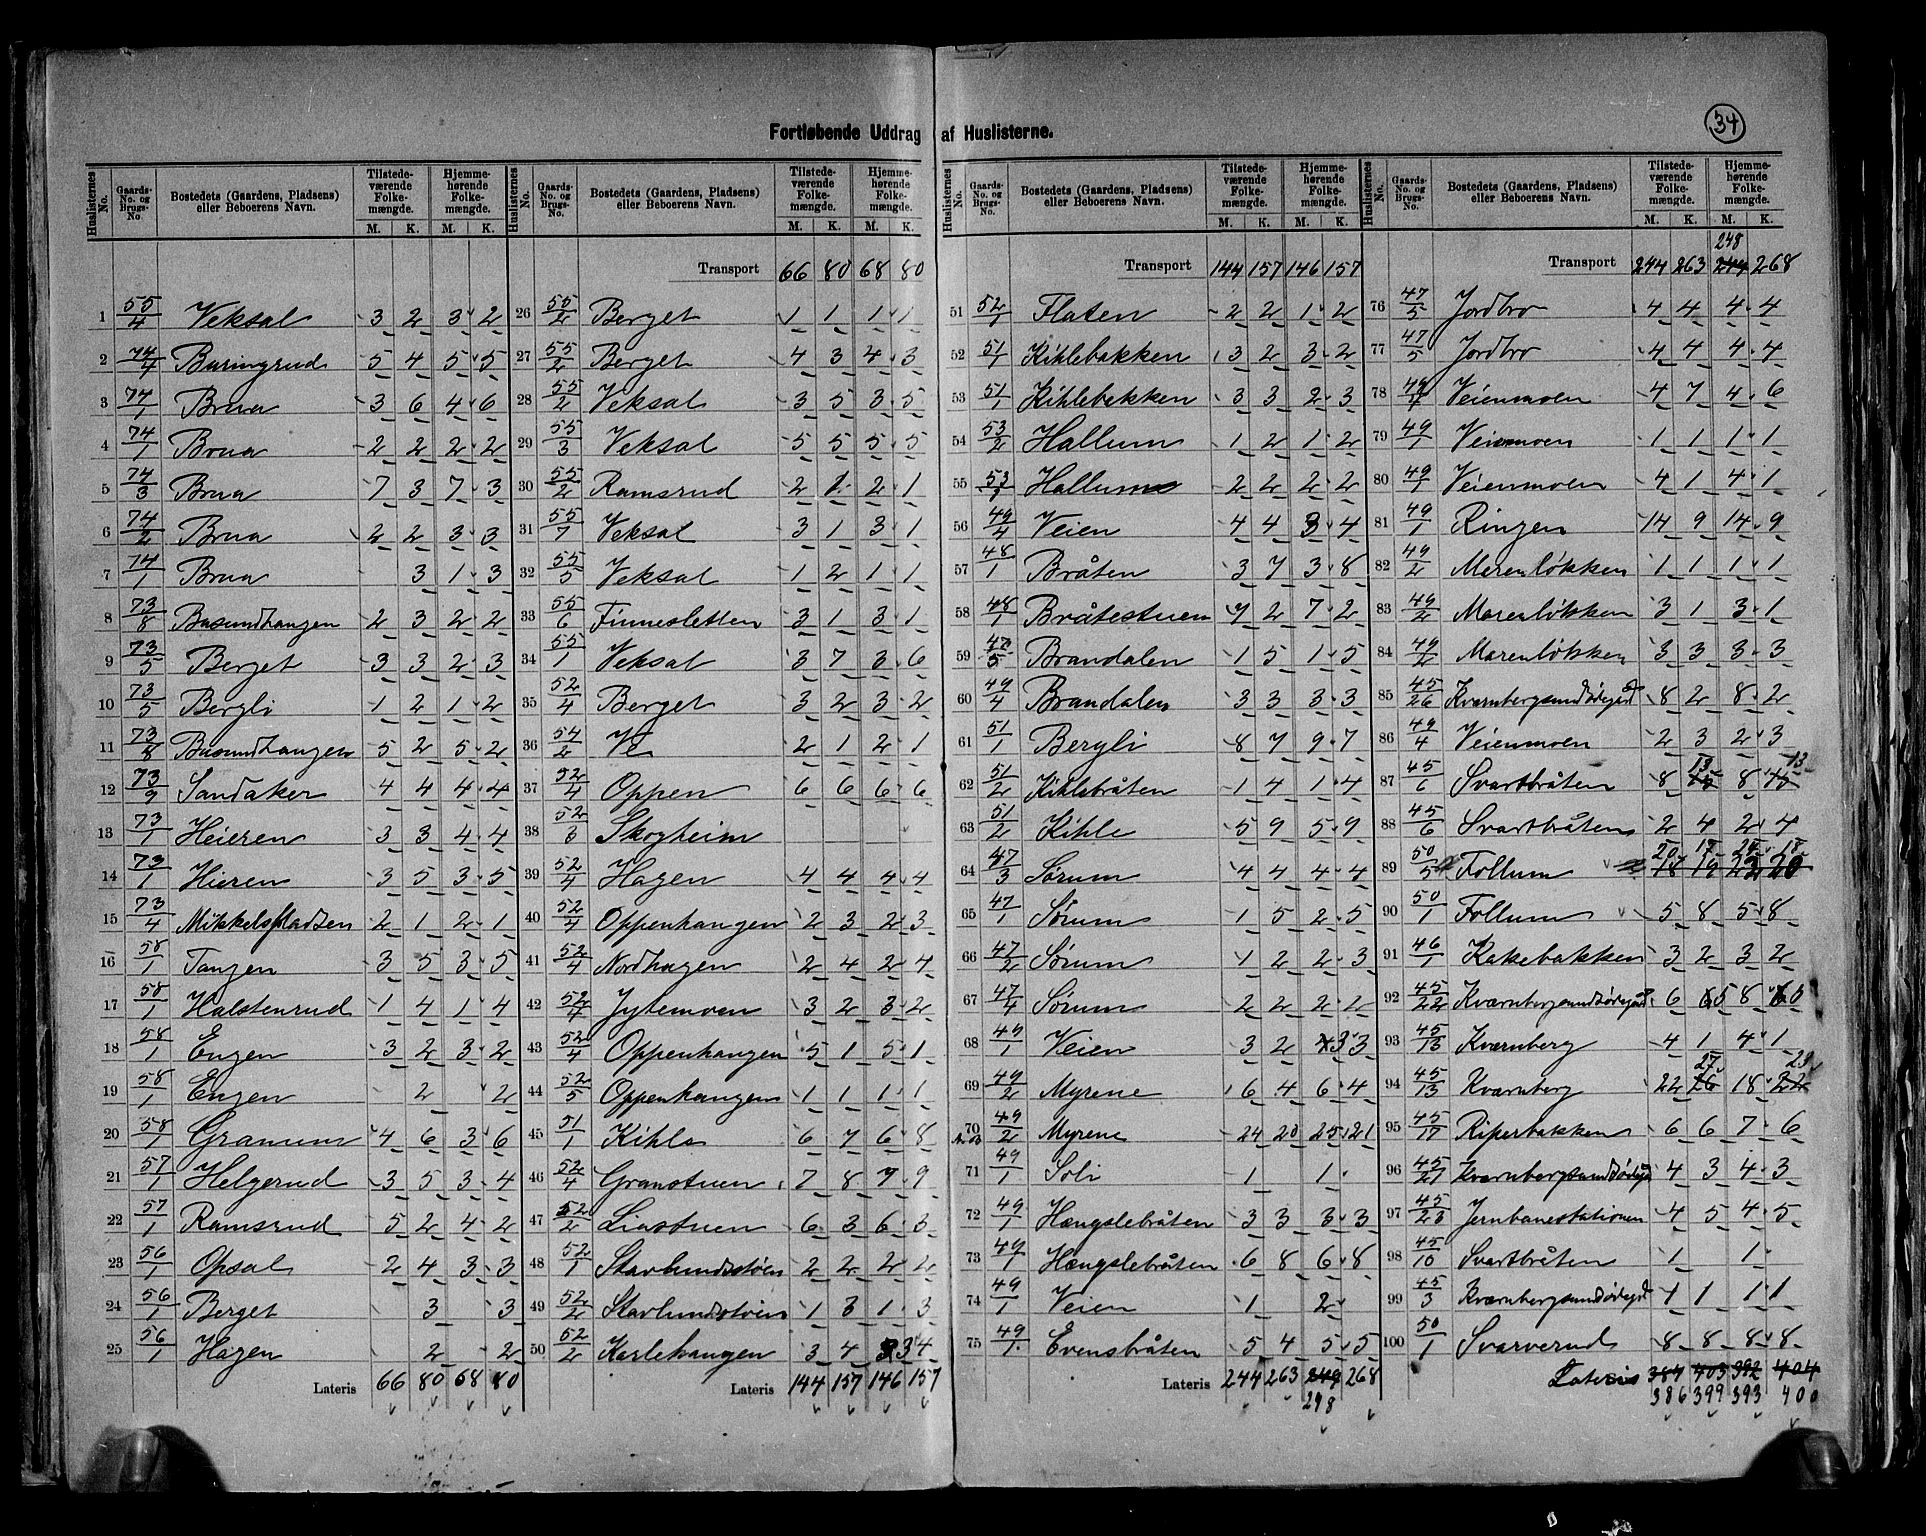 34
Fortløbende Uddrag af Huslisterne.
Huslisternes No. | Gaards-No. og Brugs-No. | Bostedets (Gaardens, Pladsens) eller Beboerens Navn. | Tilstede-værende Folke-mængde. M. K. | Hjemme-hørende Folke-mængde. M. K.
1 55/4 Veksal 3 2 3 2
2 74/4 Buringrud 5 4 5 5
3 74/1 Brua 3 6 4 6
4 74/1 Brua 2 2 2 2
5 74/3 Brua 7 3 7 3
6 74/2 Brua 2 2 3 3
7 74/1 Brua 3 1 3
8 73/8 Busundhaugen 2 3 2 2
9 73/5 Berget 3 3 2 3
10 73/5 Bergli 1 2 1 2
11 73/8 Busundhaugen 5 2 5 2
12 73/9 Sandaker 4 4 4 4
13 73/1 Heieren 3 3 4 4
14 73/1 Hieren 3 5 3 5
15 73/4 Mikkelspladsen 2 1 2 1
16 58/1 Tangen 3 5 3 5
17 58/1 Halstenrud 1 4 1 4
18 58/1 Engen 3 2 3 2
19 58/1 Engen 2 2
20 58/1 Gramum 4 6 3 6
21 57/1 Helgerud 3 5 3 4
22 57/1 Ramsrud 5 2 4 2
23 56/1 Opsal 2 4 3 3
24 56/1 Berget 3 3
25 56/1 Hagen 2 2
Lateris 66 80 68 80
Huslisternes No. | Gaards-No. og Brugs-No. | Bostedets (Gaardens, Pladsens) eller Beboerens Navn. | Tilstede-værende Folke-mængde. M. K. | Hjemme-hørende Folke-mængde. M. K.
Transport 66 80 68 80
26 55/2 Berget 1 1 1 1
27 55/2 Berget 4 3 4 3
28 55/2 Veksal 3 5 3 5
29 55/3 Veksal 5 5 5 5
30 55/2 Ramsrud 2 1 2 1
31 55/7 Veksal 3 1 3 1
32 55/5 Veksal 1 2 1 1
33 55/6 Finnesletten 3 1 3 1
34 55/1 Veksal 3 7 3 6
35 52/4 Berget 3 2 3 2
36 54/2 Ve 2 1 2 1
37 52/4 Oppen 6 6 6 6
38 52/3 Skogheim
39 52/4 Hagen 4 4 4 4
40 52/4 Oppenhaugen 2 3 2 3
41 52/4 Nordhagen 2 4 2 4
42 52/4 Jytemoen 3 2 3 2
43 52/4 Oppenhaugen 5 1 5 1
44 52/5 Oppenhaugen 1 1 1 1
45 51/1 Kihle 6 7 6 8
46 52/4 Granstuen 7 8 7 9
47 52/2 Liastuen 6 3 6 3
48 52/1 Stavlundsstøen 2 2 2 2
49 52/2 Stavlundsstøen 1 3 1 3
50 52/2 Karlehaugen 3 4 3 4
Lateris 144 157 146 157
Huslisternes No. | Gaards-No. og Brugs-No. | Bostedets (Gaardens, Pladsens) eller Beboerens Navn. | Tilstede-værende Folke-mængde. M. K. | Hjemme-hørende Folke-mængde. M. K.
Transport 144 157 146 157
51 52/1 Flaten 2 2 1 2
52 51/1 Kihlebakken 3 2 3 2
53 51/1 Kihlebakken 3 3 2 3
54 53/2 Hallum 1 2 1 2
55 53/1 Hallum 2 2 2 2
56 49/4 Veien 4 4 3 4
57 48/1 Bråten 3 7 3 8
58 48/1 Bråtestuen 7 2 7 2
59 47/5 Brandalen 1 5 1 5
60 49/4 Brandalen 3 3 3 3
61 51/1 Bergli 8 7 9 7
62 51/2 Kihlebråten 1 4 1 4
63 51/2 Kihle 5 9 5 9
64 47/3 Sørum 4 4 4 4
65 47/1 Sørum 1 5 2 5
66 47/2 Sørum 1 2 2 3
67 47/4 Sørum 2 2 2 2
68 49/1 Veien 3 2 3 3
69 49/2 Myrene 6 4 6 4
70 49/2 Myrene 24 20 25 21
71 49/1 Soli 1 1
72 49/1 Hængslebråten 3 3 3 3
73 49/1 Hængslebråten 6 8 6 8
74 49/1 Veien 1 2
75 49/1 Evensbråten 5 4 5 5
Lateris 244 263 249 268
248
Huslisternes No. | Gaards-No. og Brugs-No. | Bostedets (Gaardens, Pladsens) eller Beboerens Navn. | Tilstede-værende Folke-mængde. M. K. | Hjemme-hørende Folke-mængde. M. K.
248
Transport 244 263 249 268
76 47/5 Jordbro 4 4 4 4
77 47/5 Jordbro 4 4 4 4
78 49/1 Veienmoen 4 7 4 6
79 49/1 Veienmoen 1 1 1 1
80 49/1 Veienmoen 4 1 4 1
81 49/1 Ringen 14 9 14 9
82 49/2 Marenløkken 1 1 1 1
83 49/2 Marenløkken 3 1 3 1
84 49/2 Marenløkken 3 3 3 3
85 45/26 Kværnbergsundødegård 8 2 8 2
86 49/4 Veienmoen 2 3 2 3
13 13
87 45/6 Svartbråten 8 15 8 15
88 45/6 Svartbråten 2 4 2 4
89 50/5 Follum
90 50/1 Follum 5 8 5 8
91 46/1 Kakebakken 3 2 3 2
92 45/22 Kværnbergsundødegård 6 5 8
93 45/13 Kværnberg 4 1 4 1
27 23
94 45/13 Kværnberg 22 26 18 22
95 45/17 Riperbakken 6 6 7 6
96 45/27 Kværnbergsundødegå 4 3 4 3
97 45/23 Jernbanestationen 4 5 4 5
98 45/10 Svartbråten 1 1
99 45/3 Kværnbergsundødegd 1 1 1 1
100 50/1 Svarverud 8 8 8 8
Lateris 384 403 392 404
386 399 393 400